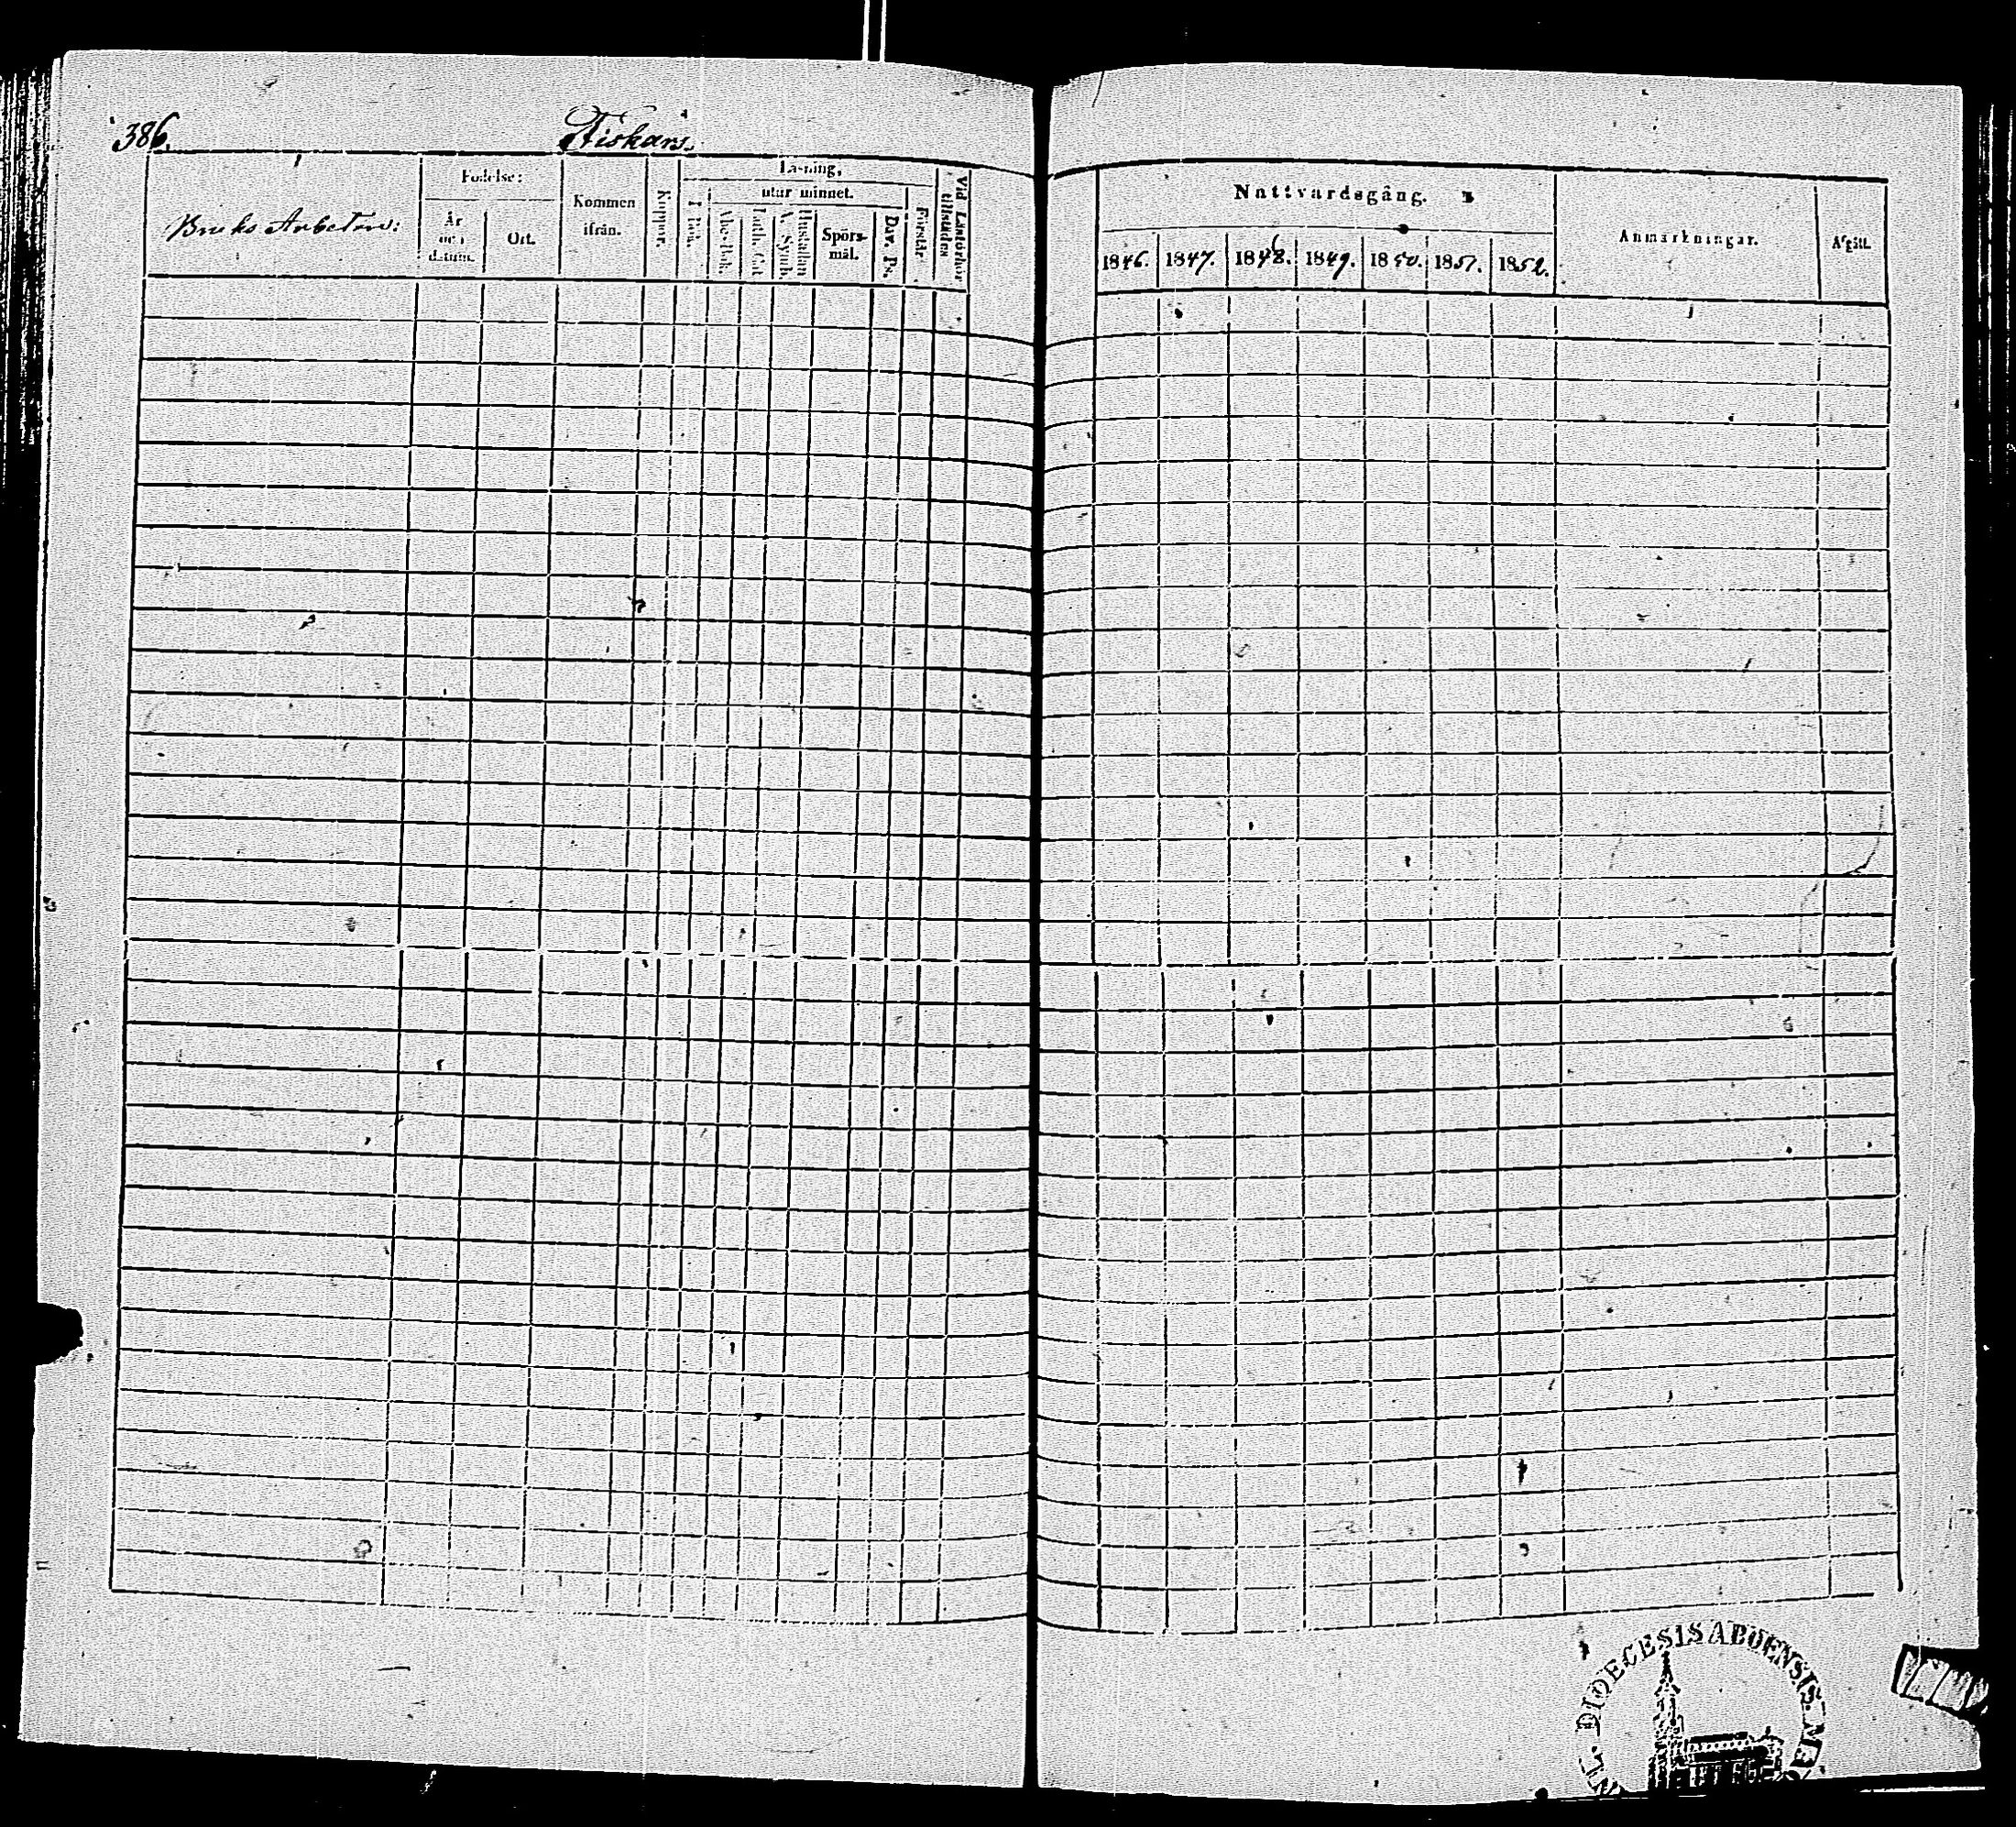 386.
Fiskars.
Bruks Arbetare:
Födelse:
År och datum.
Ort.
Kommen ifrån.
Koppor.
Läsning,
I Bok.
utur minnet.
Abc-Bok.
Luth. Cat.
Hustaflan
A. Symb.
Spörsmål.
Dav. Ps.
Förstår.
Vid Läsförhör tillstädes
Nattvardsgång.
1846. 1847. 1848. 1849. 1850. 1851. 1852.
Anmärkningar.
Afgått.
DIOECESIS ABOENSIS.